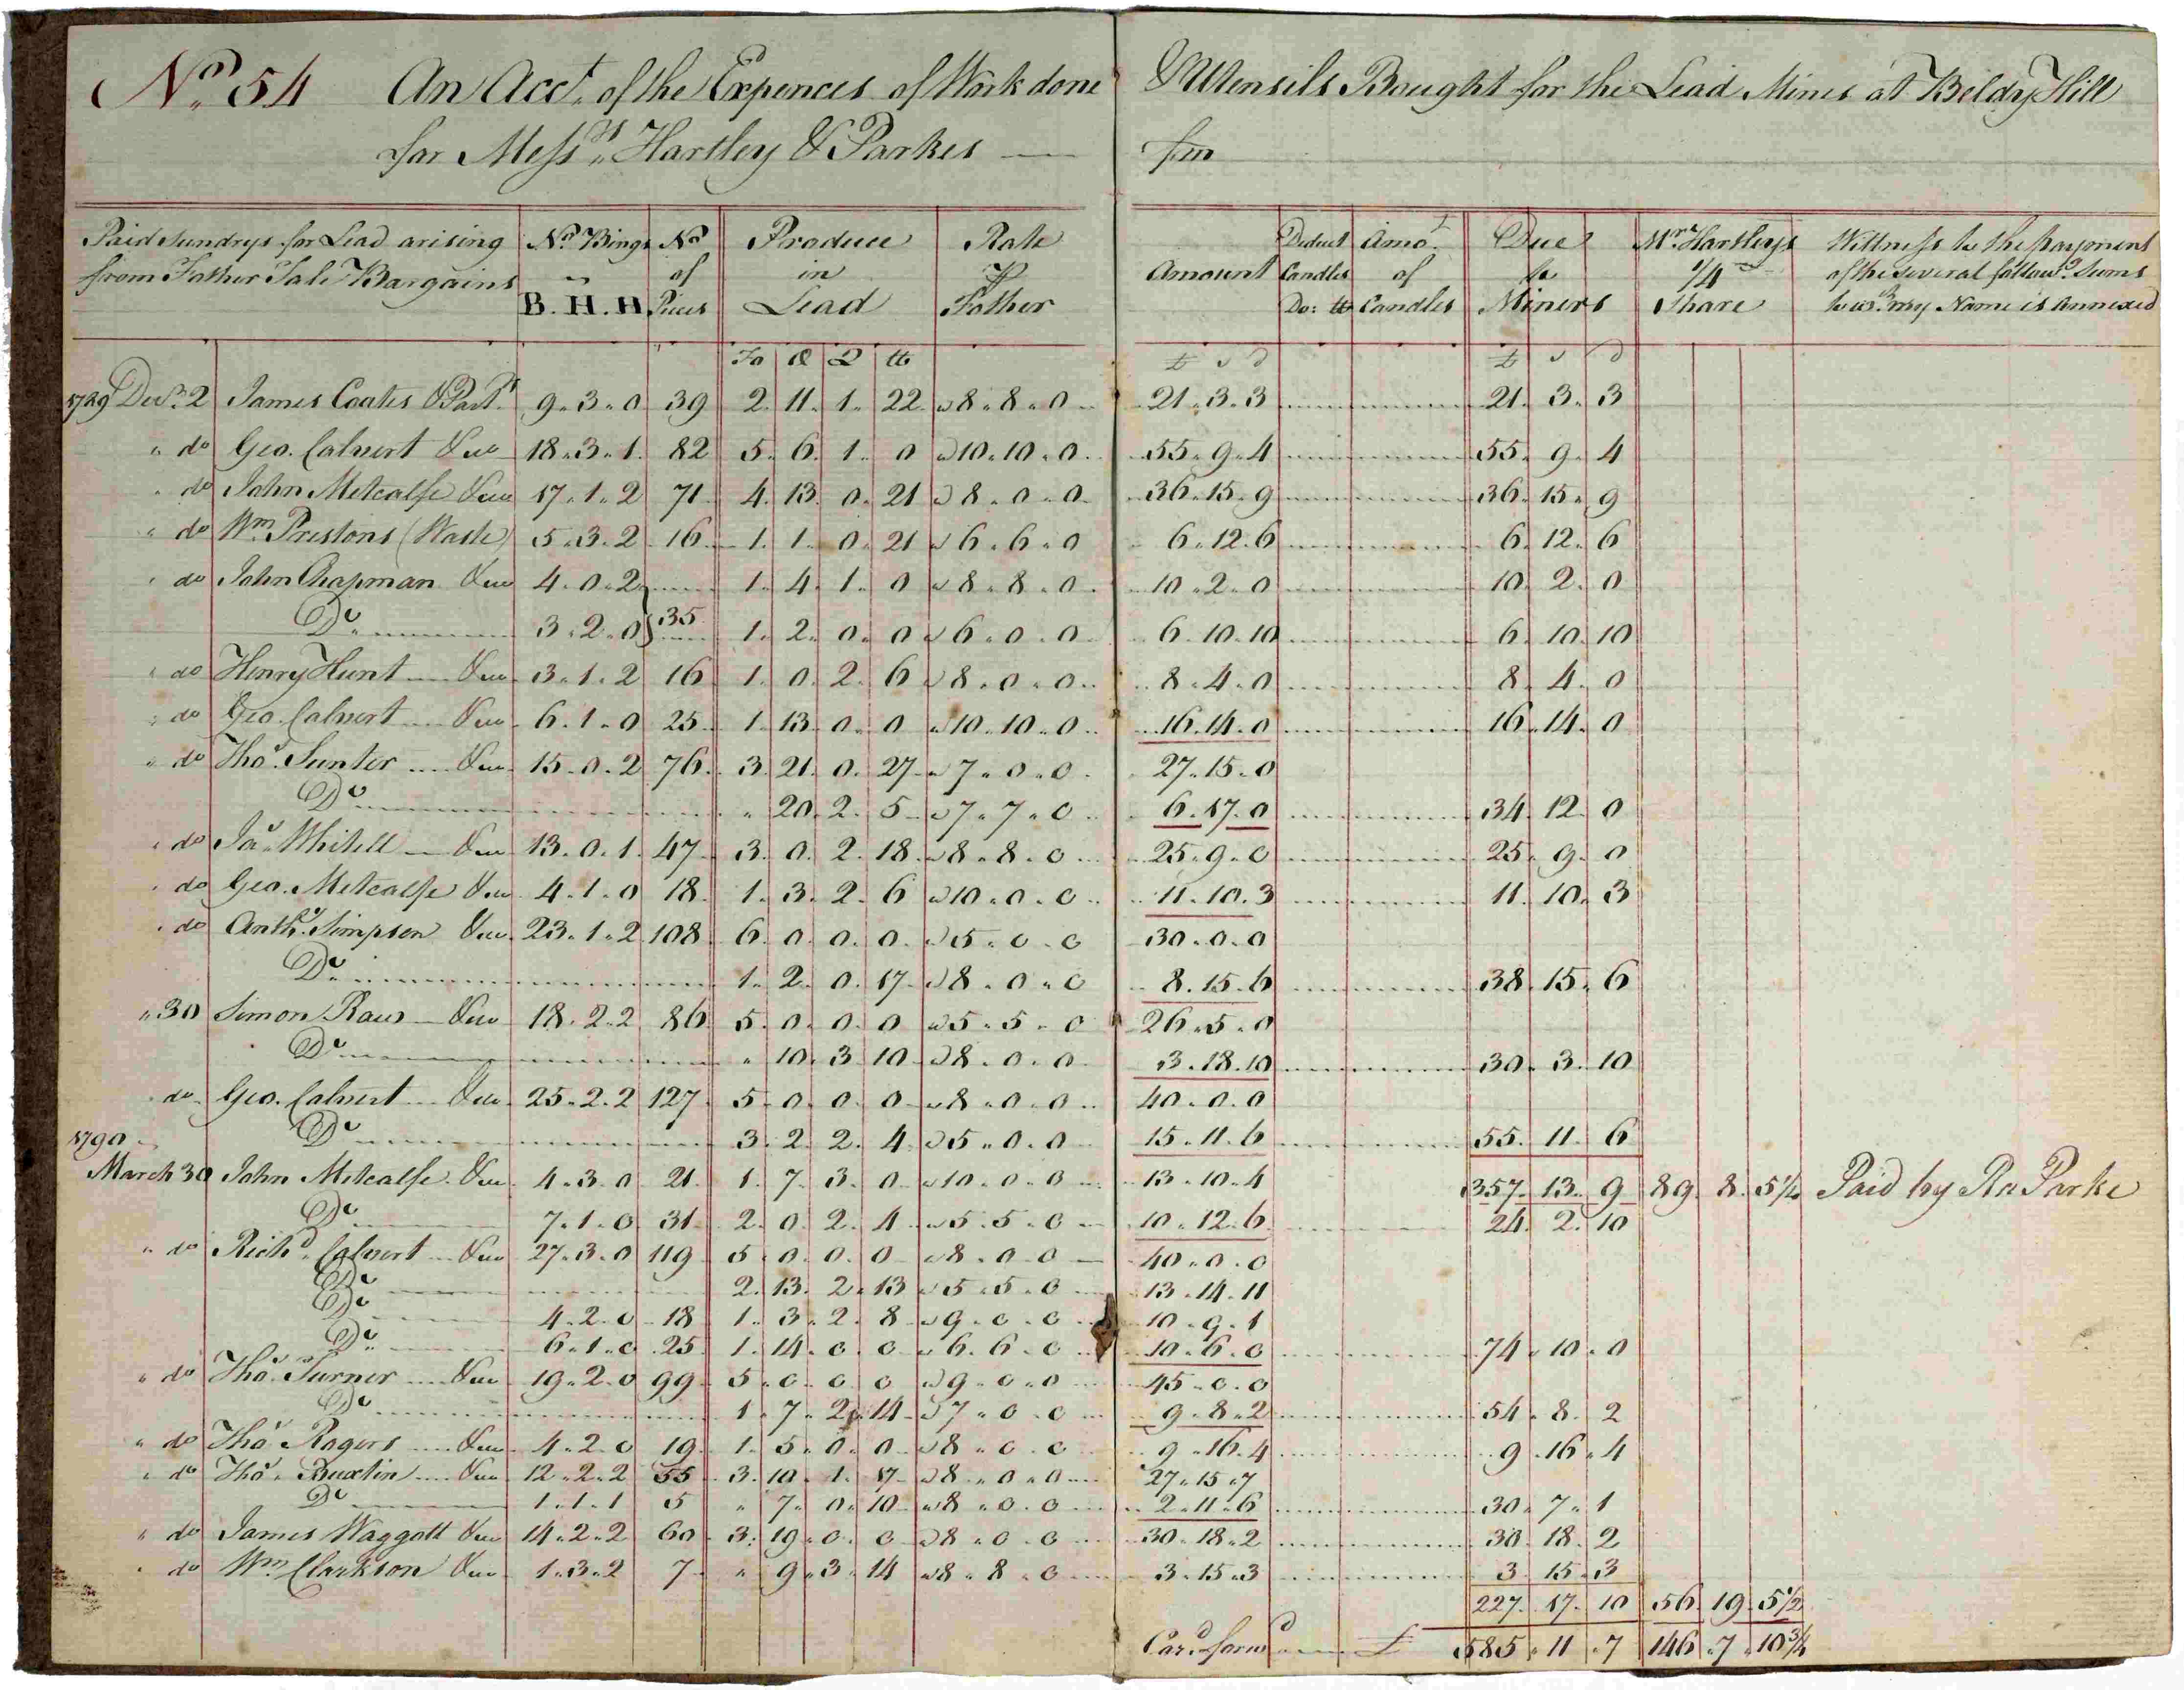 No. 54 An Acct. of the Expences of Work done & Utensils Bought for the Lead Mines at Beldy Hill
for Messrs. Hartley & Parkes — from
Paid Sundrys for Lead arising from Fother Tale Bargains | No. Bings B. H. H | No. of Pieces | Produce in Lead | Rate ⅌ Fother | Amount | Deduct Candles Do: lb | Amot. of Candles | Due to Miners | Mr. Hartleys 1/4 Share | Wittness to the Payment of the several follow.g Sums to wch. my Name is Annexed
Fo | C | Q | lb | £ s d | £ s d
1789 Decr. 2 James Coates & Part. 9.3.0 39 2.11.1.22 @ 8.8.0 21.3.3 21.3.3
" do Geo. Calvert & Co 18.3.1 82 5.6.1.0 @ 10.10.0 55.9.4 55.9.4
" do John Metcalfe & Co 17.1.2 71 4.13.0.21 @ 8.0.0 36.15.9 36.15.9
" do Wm. Prestons (Waste) 5.3.2 16 1.1.0.21 @ 6.6.0 6.12.6 6.12.6
" do John Chapman & Co 4.0.2 1.4.1.0 @ 8.8.0 10.2.0 10.2.0
Do 3.2.0 } 35 1.2.0.0 @ 6.0.0 6.10.10 6.10.10
" do Henry Hunt & Co 3.1.2 16 1.0.2.6 @ 8.0.0 8.4.0 8.4.0
" do Geo. Calvert & Co 6.1.0 25 1.13.0.0 @ 10.10.0 16.14.0 16.14.0
" do Thos. Sunter & Co 15.0.2 76 3.21.0.27 @ 7.0.0 27.15.0
Do " 20.2.5 @ 7.7.0 6.17.0 34.12.0
" do Jas. Whitell & Co 13.0.1 47 3.0.2.18 @ 8.8.0 25.9.0 25.9.0
" do Geo. Metcalfe & Co 4.1.0 18 1.3.2.6 @ 10.0.0 11.10.3 11.10.3
" do Anthy. Simpson & Co 23.1.2 108 6.0.0.0 @ 5.0.0 30.0.0
Do 1.2.0.17 @ 8.0.0 8.15.6 38.15.6
" 30 Simon Raw & Co 18.2.2 86 5.0.0.0 @ 5.5.0 26.5.0
Do " 10.3.10 @ 8.0.0 3.18.10 30.3.10
do Geo. Calvert & Co 25.2.2 127 5.0.0.0 @ 8.0.0 40.0.0
1790 Do 3.2.2.4 @ 5.0.0 15.11.6 55.11.6
March 30 John Metcalfe & Co 4.3.0 21 1.7.3.0 @ 10.0.0 13.10.4 357.13.9 89.8.5 1/4 Paid by Rd Parke
Do 7.1.0 31 2.0.2.4 @ 5.5.0 10.12.6 24.2.10
" do Richd. Calvert & Co 27.3.0 119 5.0.0.0 @ 8.0.0 40.0.0
Do 2.13.2.13 @ 5.5.0 13.14.11
Do 4.2.0 18 1.3.2.8 @ 9.0.0 10.9.1
Do 6.1.0 25 1.14.0.0 @ 6.6.0 10.6.0 74.10.0
" do Thos. Turner & Co 19.2.0 99 5.0.0.0 @ 9.0.0 45.0.0
Do 1.7.2.14 @ 7.0.0 9.8.2 54.8.2
" do Thos Rogers & Co 4.2.0 19 1.5.0.0 @ 8.0.0 9.16.4 9.16.4
" do Thos. Buxtin & Co 12.2.2 55 3.10.1.17 @ 8.0.0 27.15.7
Do 1.1.1 5 " 7.0.10 @ 8.0.0 2.11.6 30.7.1
" do James Waggott & Co 14.2.2 60 3.19.0.0 @ 8.0.0 30.18.2 30.18.2
" do Wm. Clarkson & Co 1.3.2 7 " 9.3.14 @ 8.8.0 3.15.3 3.15.3
227.17.10 56.19.5 1/2
Card. forwd £ 585.11.7 146.7.10 3/4